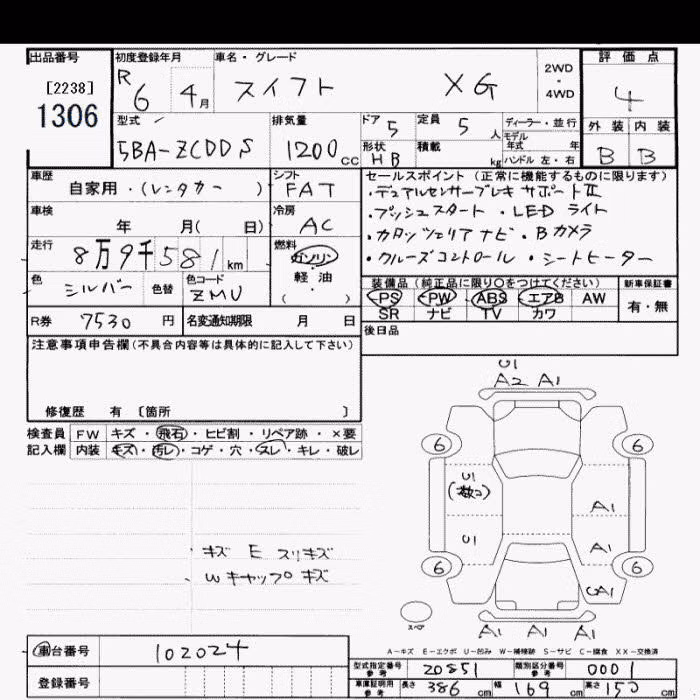 出品番号 初度登録年月 車名・グレード 2WD・4WD 評価点
[2238] 1306 R6 4月 スイフト XG 4
型式 排気量 ドア 5 定員 5人 ディーラー・並行 外装 内装
5BA-ZCDDS 1200cc 形状 HB 積載 kg モデル年式 年 ハンドル 左・右 B B
車歴 自家用・(レンタカー) シフト FAT
セールスポイント (正常に機能するものに限ります)
・デュアルセンサーブレーキサポートⅡ
車検 年 月(日) 冷房 AC
・プッシュスタート ・LEDライト
走行 8万9千581km 燃料 ガソリン・軽油・( )
・カロッツェリアナビ ・Bカメラ
・クルーズコントロール ・シートヒーター
色 シルバー 色替 色コード ZMU
装備品(純正品に限り○をつけてください) 新車保証書
PS PW ABS エアB AW 有・無
SR ナビ TV カワ
R券 7530円 名変通知期限 月 日
後日品
注意事項申告欄(不具合内容等は具体的に記入して下さい)
修復歴 有 〔箇所 〕
検査員 FW キズ・飛石・ヒビ割・リペア跡・×要
記入欄 内装 キズ・汚レ・コゲ・穴・スレ・キレ・破レ
U1
A2 A1
6 6
U1
(数コ) A1
U1 A1
6 6
CA1
キズ E スリキズ
Wキャップ キズ
スペア A1 A1 A1
A-キズ E-エクボ U-凹み W-補修跡 S-サビ C-腐食 XX-交換済
車台番号 102024
型式指定番号 参考 20851 類別区分番号 参考 0001
登録番号
車庫証明用 参考 長さ 386cm 幅 169cm 高さ 150cm